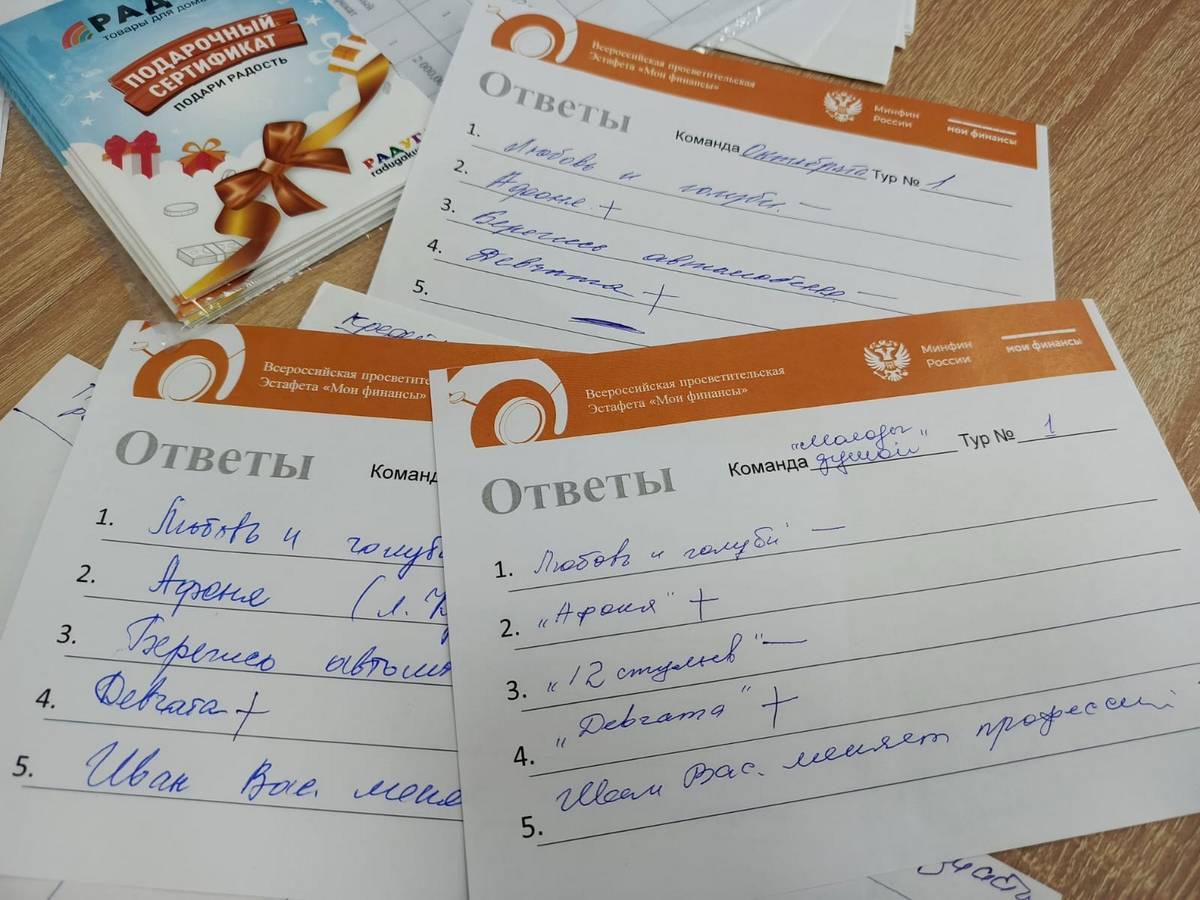 РАД
товары для дома
ПОДАРОЧНЫЙ
СЕРТИФИКАТ
ПОДАРИ РАДОСТЬ
РАДУГ
radugaku
2 000,0
Всероссийская просветительская
Эстафета «Мои финансы»
Минфин
России
мои финансы
Ответы
Команда Октябрята Тур № 1
1. Любовь и голуби —
2. Афоня +
3. Берегись автомобиля —
4. Девчата +
5.
Всероссийская просветите
Эстафета «Мои финансы»
Ответы
Команд
1. Любовь и голуб
2. Афоня (л.
3. Берегись автом
4. Девчата +
5. Иван Вас. меня
Всероссийская просветительская
Эстафета «Мои финансы»
Минфин
России
мои финансы
Ответы
Команда "Молоды душой" Тур № 1
1. Любовь и голуби —
2. "Афоня" +
3. "12 стульев" —
4. "Девчата" +
5. Иван Вас. меняет профессий